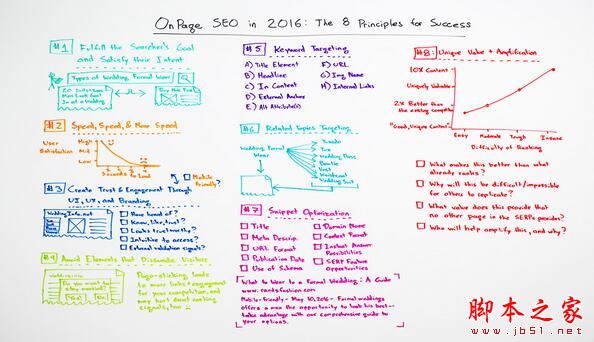 OnPage SEO in 2016: The 8 Principles for Success
#1 Fulfill the Searcher's Goal
and Satisfy their Intent
Types of Wedding Formal Wear
10 Intricacies
Men Look Good
In at a Wedding
Buy this Tux!
#2 Speed, Speed, & More Speed
User
Satisfaction
High
Mid
Low
Seconds to Load
Mobile
Friendly?
#3 Create Trust & Engagement Through
UI, UX, and Branding
WeddingInfo.net
Have heard of?
Know, like, trust?
Looks trustworthy?
Intuitive to access?
External validation signals?
#4 Avoid Elements that Dissuade Visitors
Do you want to
stay married?
Yes!
No!
Pogo-sticking, leads
to more links + engagement
for your competitor, and
may hurt direct ranking
signals, too
#5 Keyword Targeting
A) Title Element
B) Headline
C) In Content
D) External Anchor
E) Alt Attribute(s)
F) URL
G) Img Name
H) Internal Links
#6 Related Topics Targeting
Wedding Formal
Wear
Tuxedo
Tux
Wedding Dress
Bowtie
Vest
Waistcoat
Wedding Suit
#7 Snippet Optimization
Title
Meta Descrip.
URL Format
Publication Date
Use of Schema
Domain Name
Content Format
Instant Answer
Possibilities
SERP Feature
Opportunities
What to Wear to a Formal Wedding: A Guide
www.randsfashion.com
Mobile-friendly - May 10, 2016 - Formal weddings
offers a man the opportunity to look his best -
take advantage with our comprehensive guide to
your options.
#8: Unique Value + Amplification
10X Content
Uniquely Valuable
2X Better than
the existing competition
"Good, Unique Content"
Easy
Moderate
Tough
Insane
Difficulty of Ranking
What makes this better than what
already ranks?
Why will this be difficult/impossible
for others to replicate?
What value does this provide
that no other page in the SERPs provides?
Who will help amplify this, and why?
脚本之家
www.jb51.net